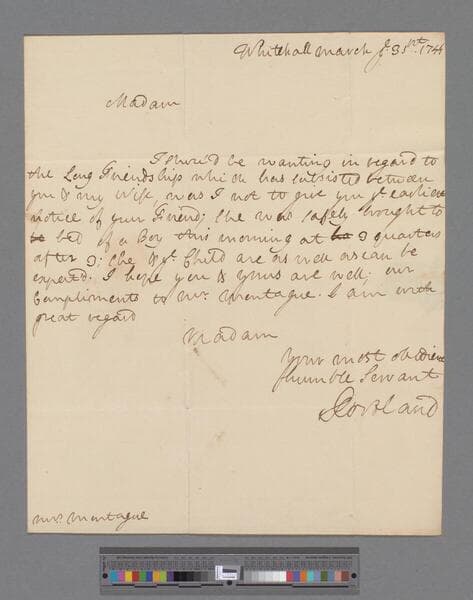 Whitehall march ye 31st. 174
Madam
I shou'd be wanting in regard to
the Long Friendship which has subsisted between
you & my Wife was I not to give you ye earliest
notice of your Friend; she was safely brought to
be bed of a Boy this morning at 3 quarters
after 3: she & ye Child are as well as can be
expected. I hope you & yours are well; our
Compliments to Mr. Montague. I am with
great regard
Madam
Your most obedient
Humble Servant
Portland
Mrs. Montague